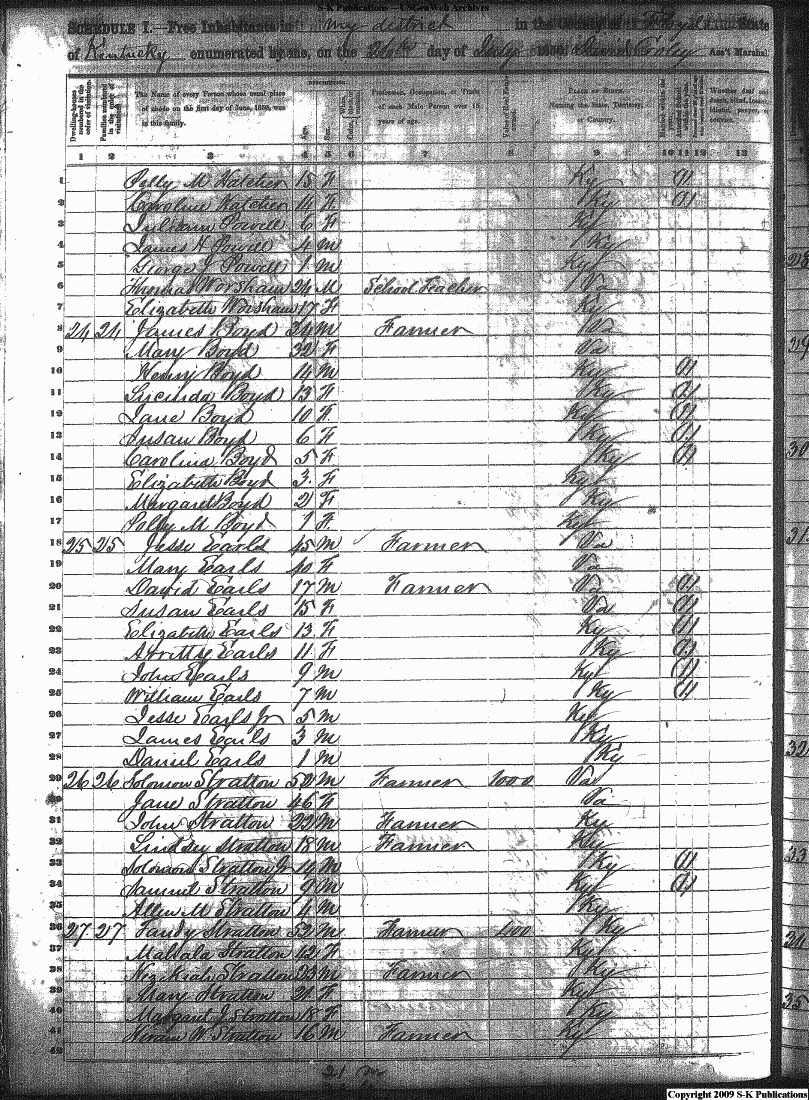 S-K Publications — USGenWeb Archives
SCHEDULE I.—Free Inhabitants in my district in the County of Floyd State
of Kentucky enumerated by me, on the 26th day of July 1850. Ass't Marshal
Dwelling-houses numbered in the order of visitation. Families numbered in the order of visitation. The Name of every Person whose usual place of abode on the first day of June, 1850, was in this family. DESCRIPTION. Age. Sex. Profession, Occupation, or Trade of each Male Person over 15 years of age. Value of Real Estate owned. PLACE OF BIRTH. Naming the State, Territory, or Country. Whether deaf and
1 2 3 4 5 6 7 8 9 10 11 12 13
1 Polly M Hatcher 15 F Ky 1
2 Caroline Hatcher 14 F Ky 1
3 Powell 6 F Ky
4 James H Powell 4 M Ky
5 George J Powell 1 M Ky
6 Worsham 24 M School Teacher Va
7 Elizabeth Worsham 17 F Ky
8 24 24 James Boyd M Farmer Va
9 Mary Boyd 32 F Va
10 Henry Boyd 14 M Ky 1
11 Lucinda Boyd 13 F Ky 1
12 Jane Boyd 10 F Ky 1
13 Susan Boyd 6 F Ky 1
14 Carolina Boyd 5 F Ky 1
15 Elizabeth Boyd 3 F Ky
16 Margaret Boyd 2 F Ky
17 Polly M Boyd 1 F Ky
18 25 25 Jesse Earls 45 M Farmer Va
19 Mary Earls 40 F Va
20 David Earls 17 M Farmer Va 1
21 Susan Earls 15 F Va 1
22 Elizabeth Earls 13 F Ky 1
23 Earls 11 F Ky 1
24 John Earls 9 M Ky 1
25 William Earls 7 M Ky 1
26 Jesse Earls Jr 5 M Ky
27 James Earls 3 M Ky
28 Daniel Earls 1 M Ky
29 26 26 Solomon Stratton 52 M Farmer 1000 Va
30 Jane Stratton 46 F Va
31 John Stratton 22 M Farmer Ky
32 Lindsey Stratton 18 M Farmer Ky
33 Solomon Stratton Jr 14 M Ky 1
34 Samuel Stratton 9 M Ky 1
35 Allen M Stratton 4 M Ky
36 27 27 Tandy Stratton 52 M Farmer Ky
37 Mahala Stratton 42 F Ky
38 Hezkiah Stratton 23 M Farmer Ky
39 Mary Stratton 21 F Ky
40 Margaret J Stratton 18 F Ky
41 Hiram W Stratton 16 M Farmer Ky
42
21 m
28
29
30
31
32
33
34
35
Copyright 2009 S-K Publications